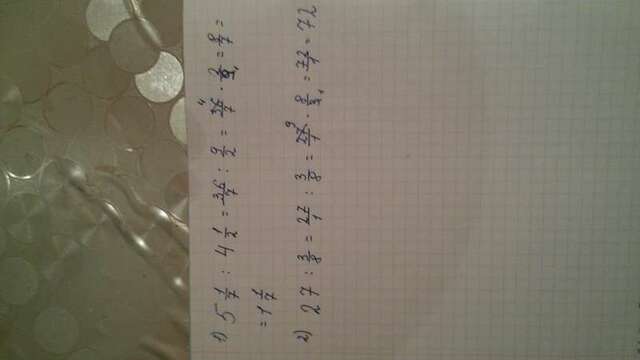 1) 5 1/7 : 4 1/2 = 36/7 : 9/2 = 36/7 4 · 2/9 1 = 8/7 =
= 1 1/7
2) 27 : 3/8 = 27/1 : 3/8 = 27/1 9 · 8/3 1 = 72/1 = 72